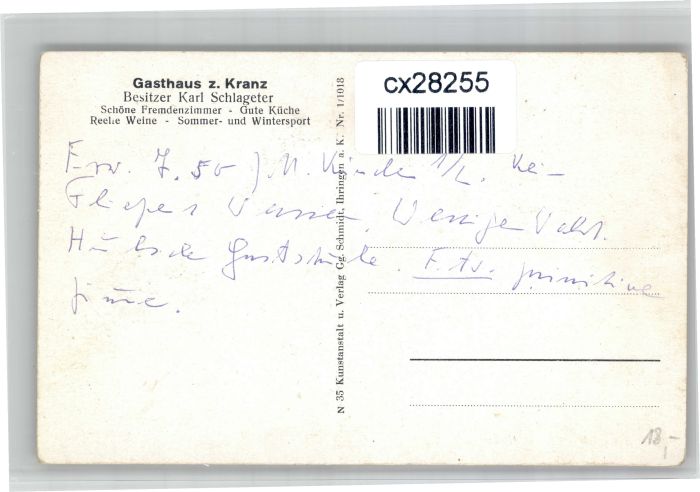 Gasthaus z. Kranz
Besitzer Karl Schlageter
Schöne Fremdenzimmer - Gute Küche
Reelle Weine - Sommer- und Wintersport
N 35 Kunstanstalt u. Verlag Gg. Schmidt, Ihringen a. K. Nr. 1/1018
cx28255
Erw. 7.50 M. Kinder 1/2. Kein
Fliessen
Hübsche Gaststube. primitive
18,-